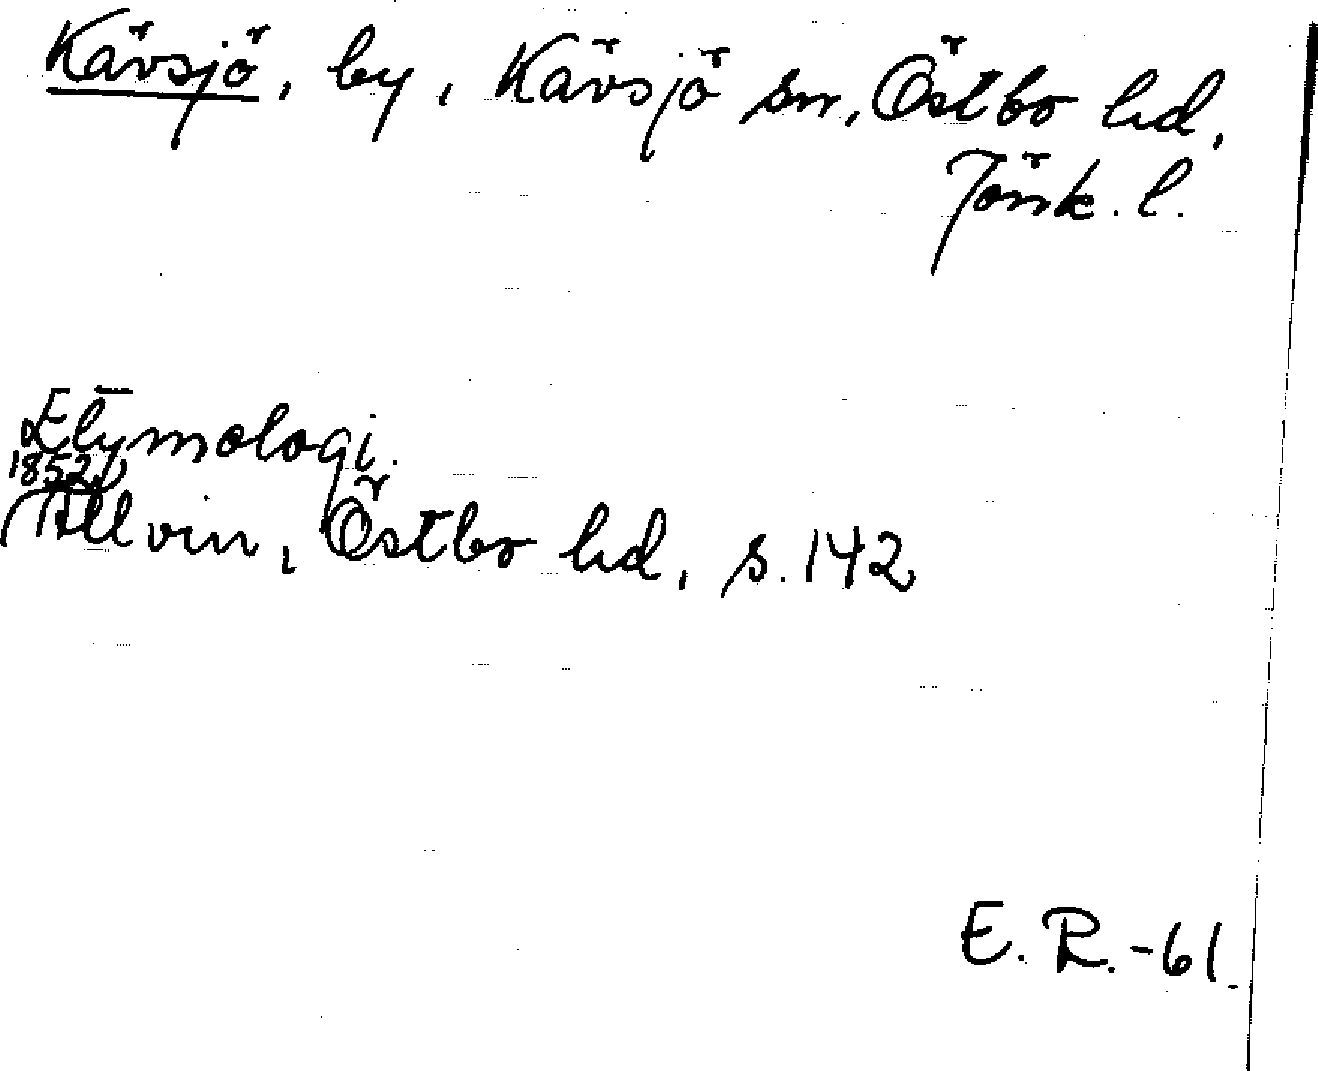 Kävsjö, by, Kävsjö sn, Östbo hd,
Jönk. l.
Etymologi.
1852,
Allvin, Östbo hd, s. 142
E. R. -61.